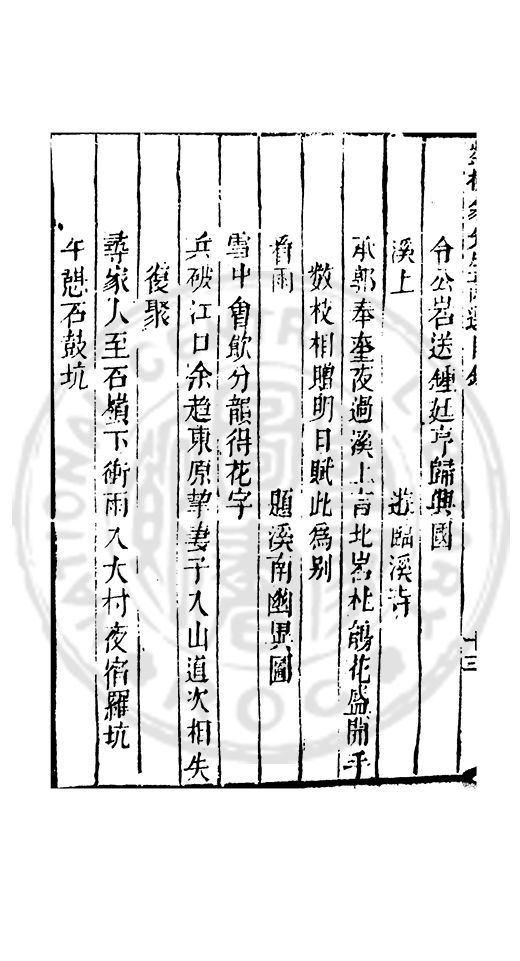 令公岩送鍾廷亨歸興國
溪上 遊臨溪寺
承郭奉奎夜過溪上言北岩杜鵑花盛開手
數枝相贈明日賦此為别
看雨 題溪南幽異圖
雪中會飲分韻得花字
兵破江口余趨東原挈妻子入山道次相失
復聚
尋家人至石嶺下衝雨入大村夜宿羅坑
午憇石鼓坑
十三